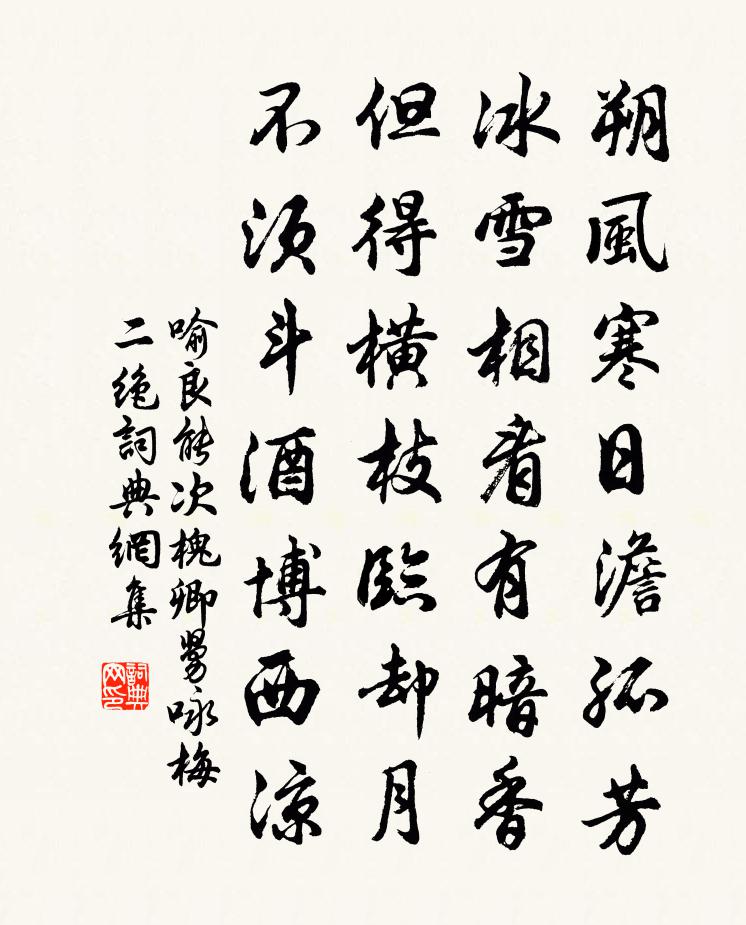 朔風寒日澹孤芳
冰雪相看有暗香
但得橫枝臨却月
不須斗酒博西涼
喻良能次槐卿舅咏梅
二絶詞典網集
詞典
网印